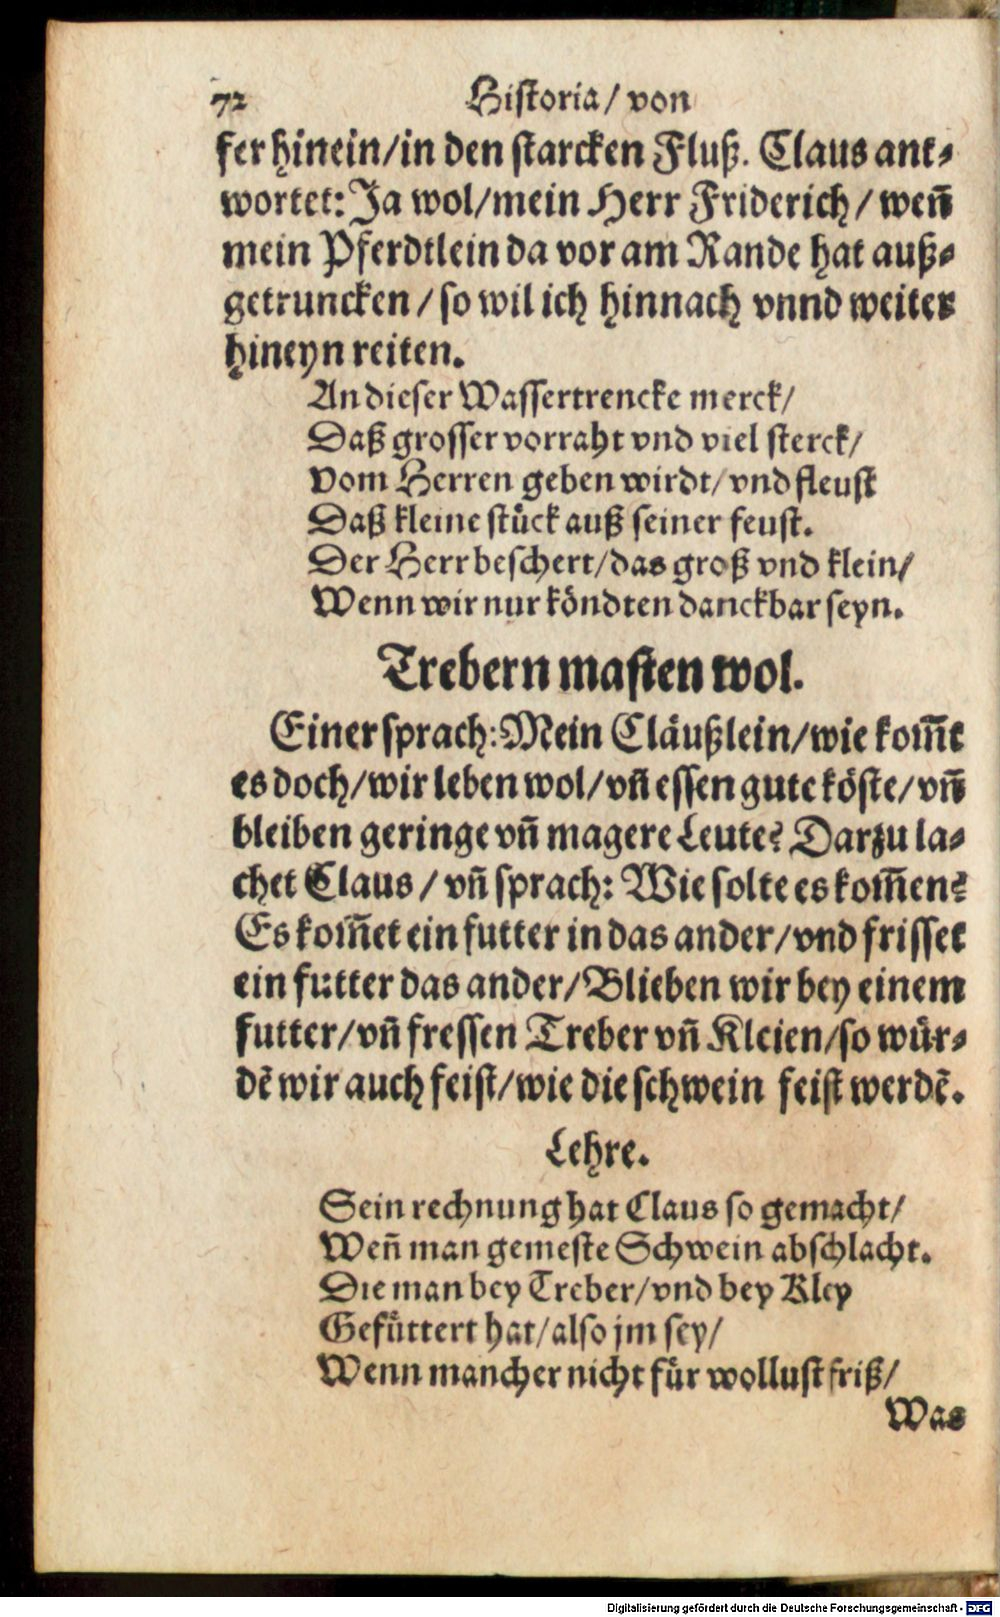 72 Historia/ von
fer hinein/in den starcken Fluß. Claus ant-
wortet: Ja wol/mein Herr Friderich/ weñ
mein Pferdtlein da vor am Rande hat auß-
getruncken/ so wil ich hinnach vnnd weiter
hineyn reiten.
An dieser Wassertrencke merck/
Daß grosser vorraht vnd viel sterck/
Vom Herren geben wirdt/ vnd fleust
Daß kleine stück auß seiner feust.
Der Herr beschert/das groß vnd klein/
Wenn wir nur köndten danckbar seyn.
Trebern masten wol.
Einer sprach: Mein Cläußlein/wie kom̃t
es doch/wir leben wol/vñ essen gute köste/vñ
bleiben geringe vñ magere Leute? Darzu la-
chet Claus/ vñ sprach: Wie solte es kom̃en?
Es kom̃et ein futter in das ander/vnd frisset
ein futter das ander/Blieben wir bey einem
futter/vñ fressen Treber vñ Kleien/so wür-
dẽ wir auch feist/wie die schwein feist werdẽ.
Lehre.
Sein rechnung hat Claus so gemacht/
Weñ man gemeste Schwein abschlacht.
Die man bey Treber/vnd bey Kley
Gefüttert hat/also jm sey/
Wenn mancher nicht für wollust friß/
Was
Digitalisierung gefördert durch die Deutsche Forschungsgemeinschaft - DFG